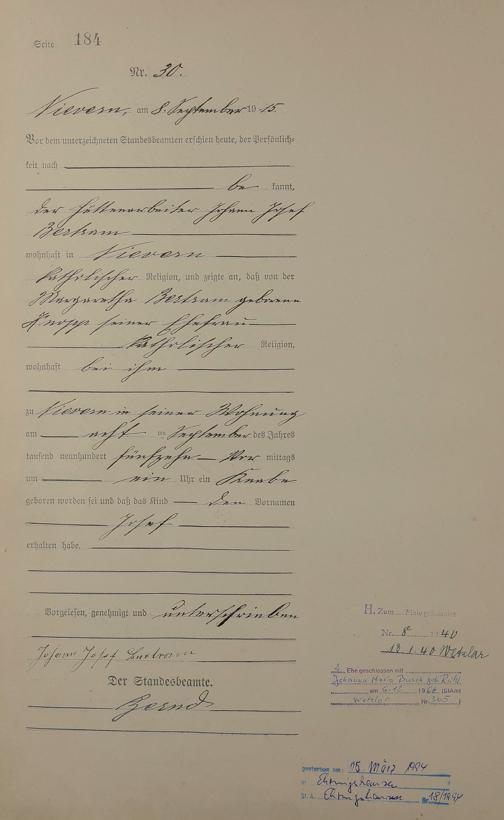 Seite 184
Nr. 30.
Nievern, am 8. September 1915.
Vor dem unterzeichneten Standesbeamten erschien heute, der Persönlich-
keit nach
be kannt,
der Hüttenarbeiter Johann Josef
Bertram
wohnhaft in Nievern
katholischer Religion, und zeigte an, daß von der
Margaretha Bertram geborene
Knopp seiner Ehefrau
katholischer Religion,
wohnhaft bei ihm
zu Nievern in seiner Wohnung
am acht ten September des Jahres
tausend neunhundert fünfzehn Vor mittags
um ein Uhr ein Knabe
geboren worden sei und daß das Kind den Vornamen
Josef
erhalten habe.
Vorgelesen, genehmigt und unterschrieben
Johann Josef Bertram
Der Standesbeamte.
H. Zum
Nr. 8 1940
Wetzlar
2. Ehe geschlossen mit
Johanna Maria geb.
am 6.12. 1968 (StAmt
Wetzlar Nr. 305)
gestorben am: 15. März 1994
in Ehringshausen
St.A. Ehringshausen Nr. 18/1994